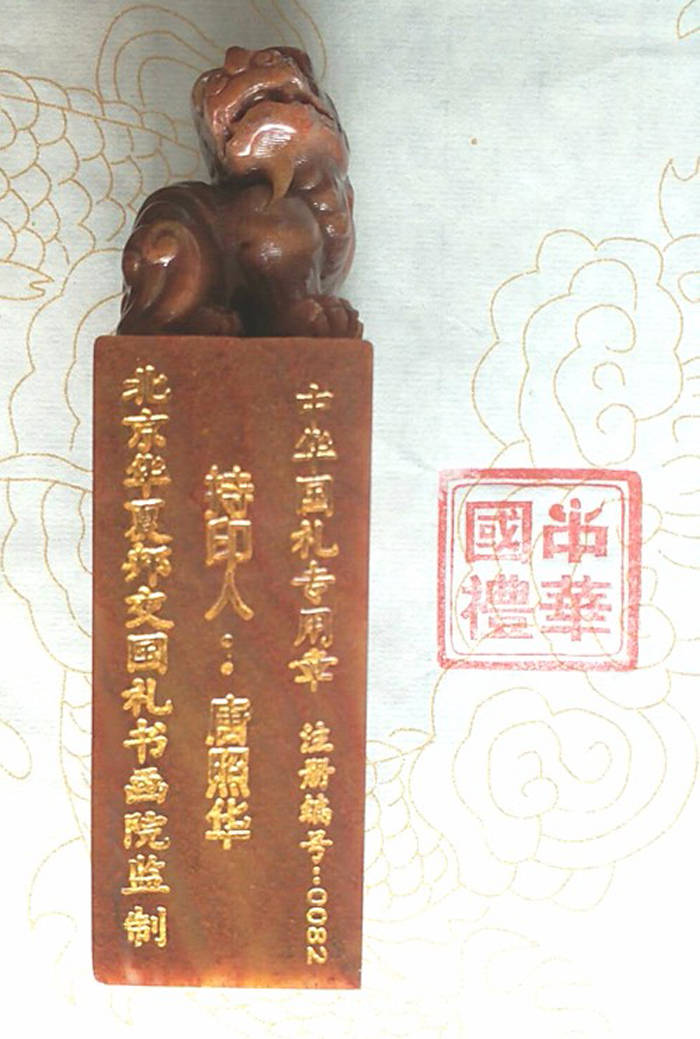 中华国礼专用章 注册编号:0082
持印人:唐照华
北京华夏邦文国礼书画院监制
中華
國禮